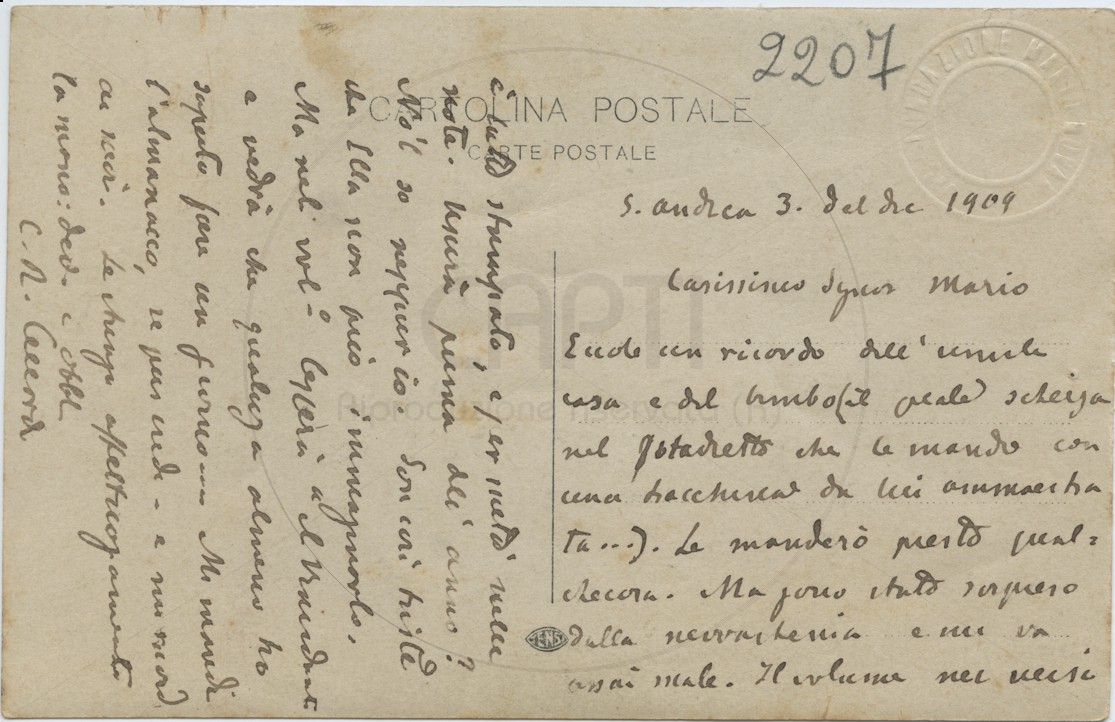 2207
FONDAZIONE MARIO NOVARO
CARTOLINA POSTALE
CARTE POSTALE
CAPTI
Riproduzione riservata (R)
S. Andrea 3. del dic 1909
Carissimo Signor Mario
Eccole un ricordo dell'umile
casa e del bimbo (il quale scherza
nel fotadietto che le mando con
una tacchina da lui ammaestra
ta...). Le manderò presto qual=
checosa. Ma sono stato sorpreso
dalla nevrastenia e mi va
assai male. Il volume nei versi
è tutto stampato, e per metà nelle
note. Uscirà prima dell'anno?
No 'l so neppur io. Son così triste
che Ella non può immaginarlo.
Ma nel vol- leggerà il Viandante
e vedrà che qualcosa almeno ho
saputo fare un giorno... Mi mandi
l'almanacco, se può
ai vecchi. Le stringo affettuosamente
la mano: dev. obbl.
C. R. Ceccardi
TENSI